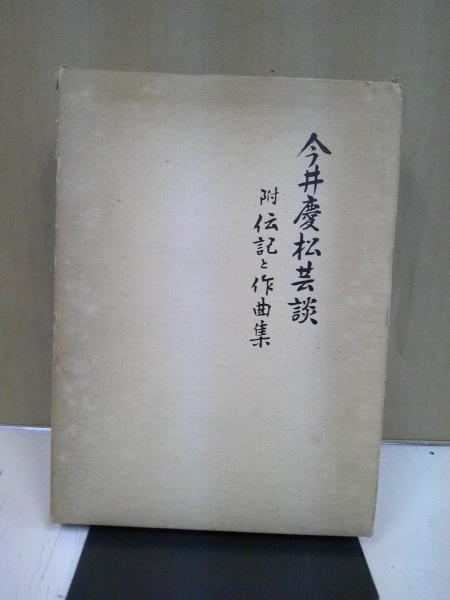 今井慶松芸談
附 伝記と作曲集